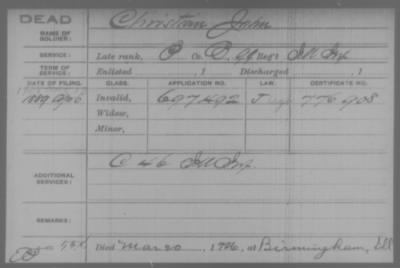 DEAD
NAME OF SOLDIER:
Christian John
SERVICE:
Late rank, P Co. D, Reg't Ill Inf
TERM OF SERVICE:
Enlisted , 1 Discharged , 1
DATE OF FILING. CLASS. APPLICATION NO. LAW. CERTIFICATE NO.
1889 Invalid, 697,492 J 776908
Widow,
Minor,
ADDITIONAL SERVICES:
C 46 Ill Inf.
REMARKS:
Died Mar 20, 1926, at Birmingham, Ill